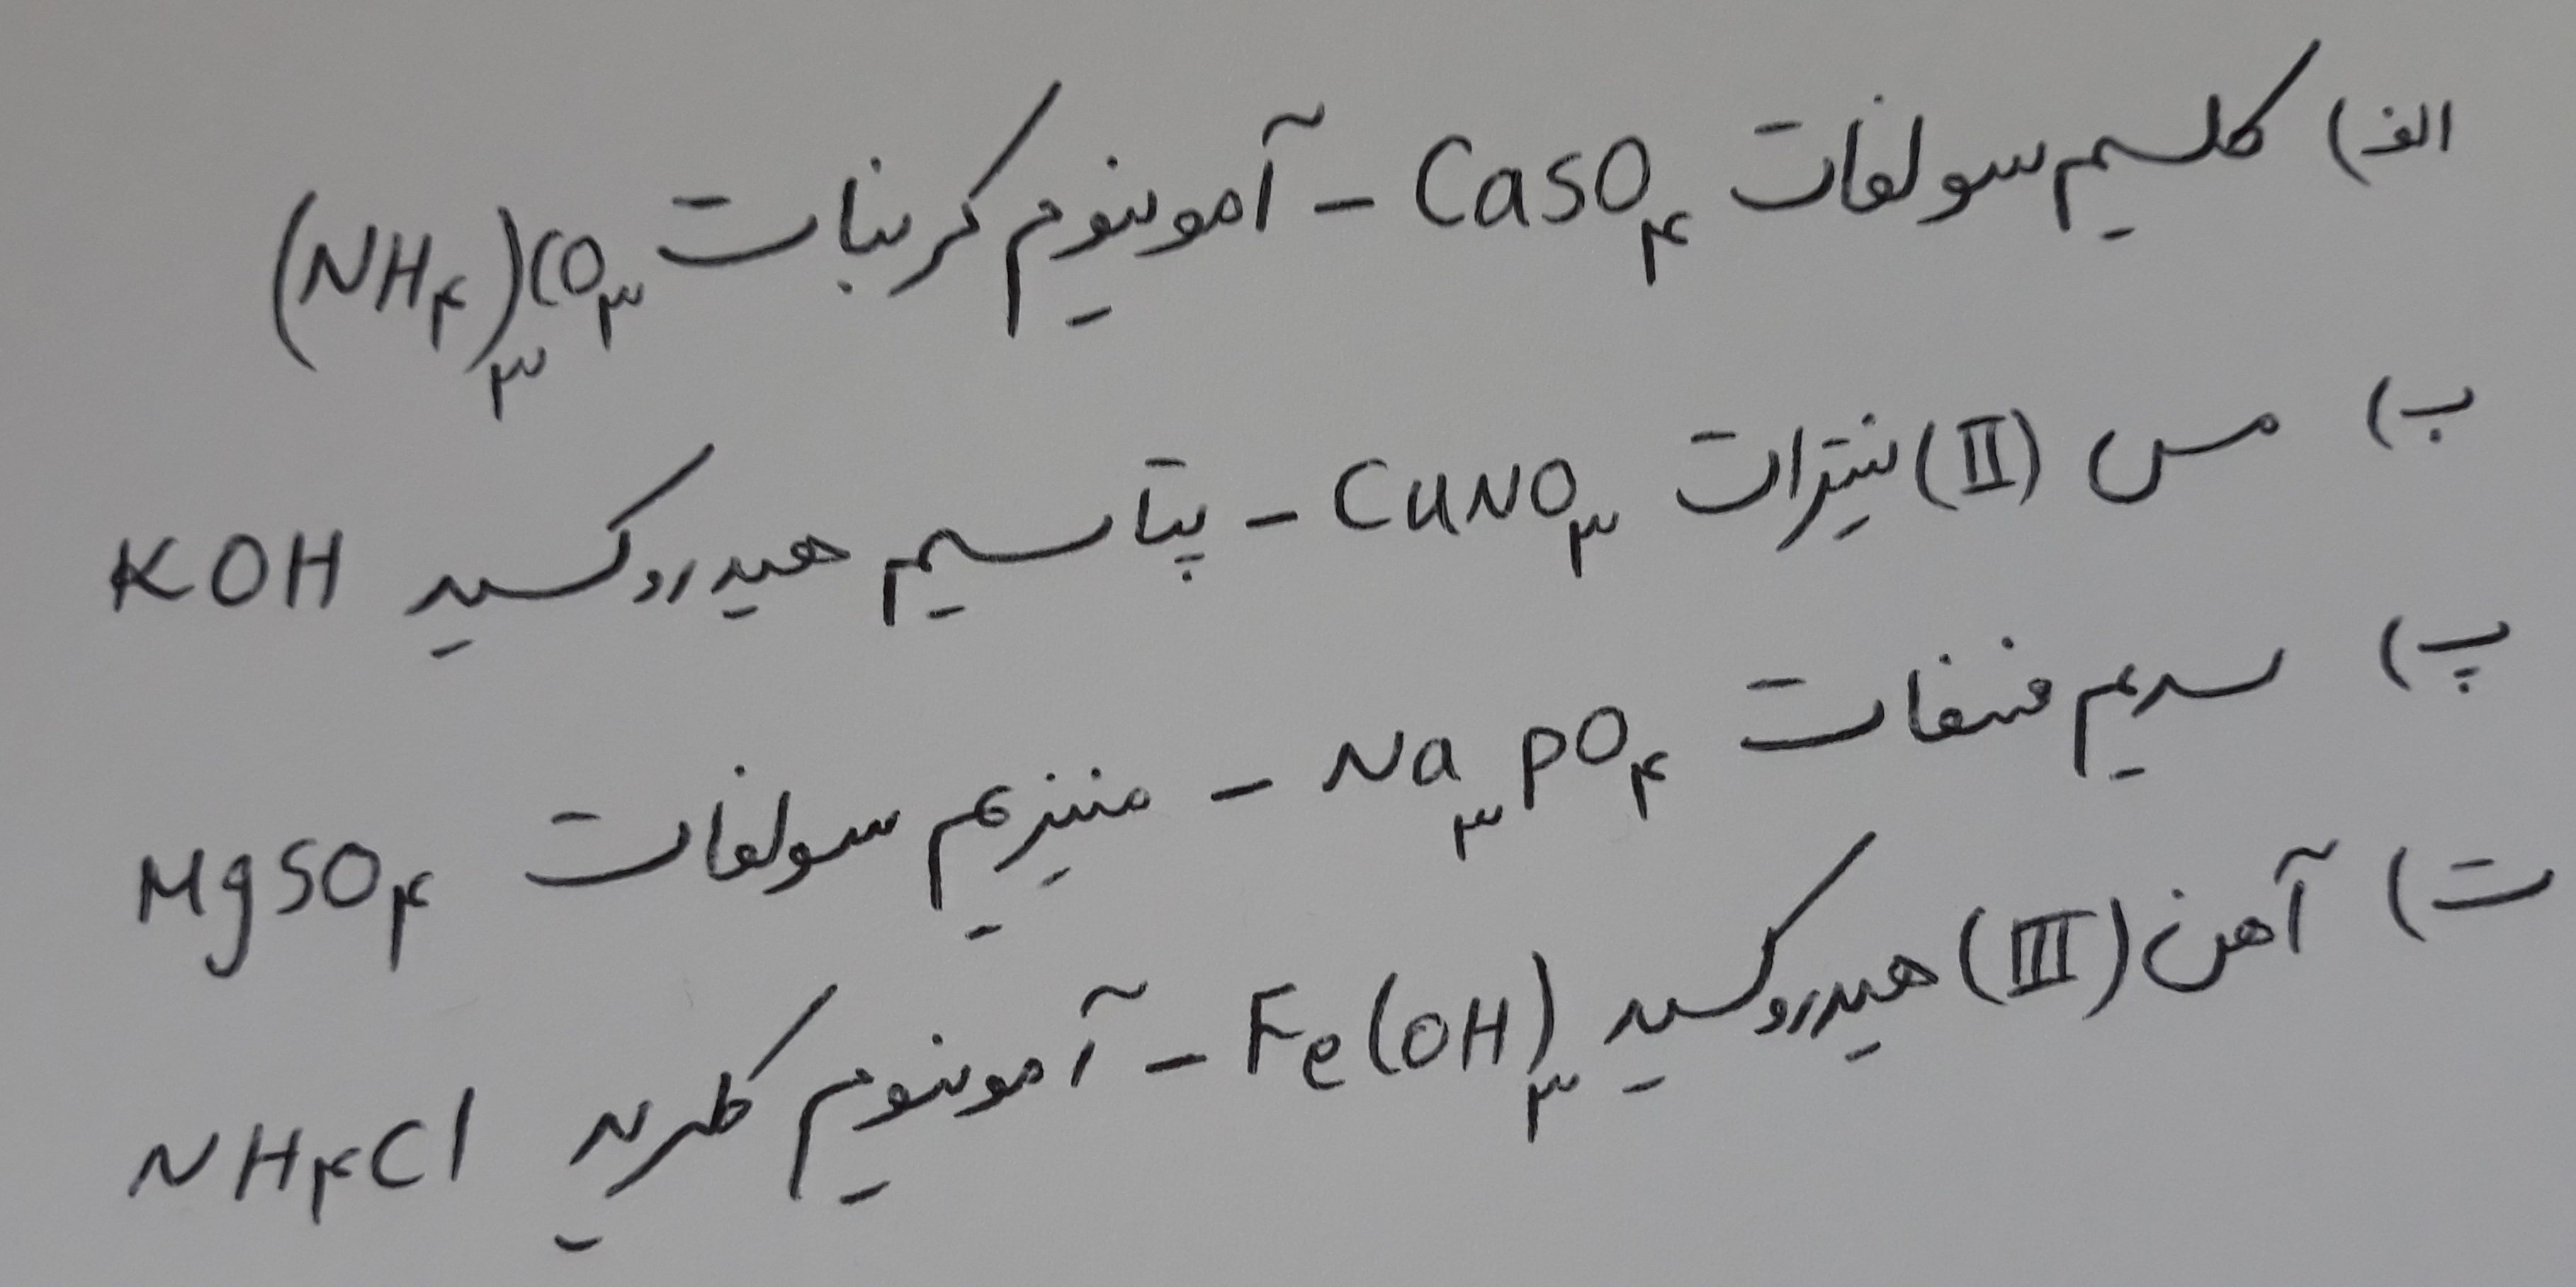 الف) کلسیم سولفات CaSO۴ - آمونیوم کربنات (NH۴)۳CO۳
ب) مس (II) نیترات CuNO۳ - پتاسیم هیدروکسید KOH
پ) سدیم فسفات Na۳PO۴ - منیزیم سولفات MgSO۴
ت) آهن (III) هیدروکسید Fe(OH)۳ - آمونیوم کلرید NH۴Cl